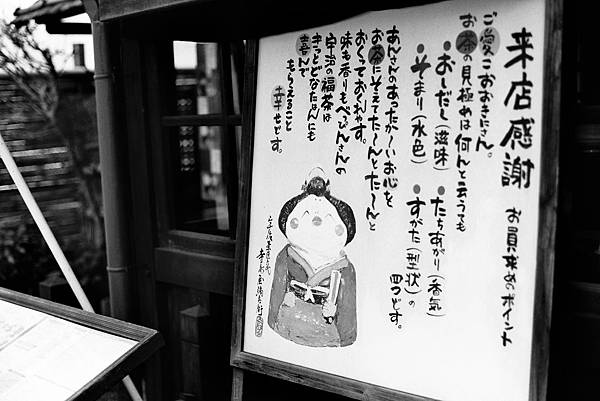 来店感謝 お員求めのポイント
ご愛こおおきにさん。
お茶の見極めは何んと云うても
・おしだし（滋味）・たちあがり（香気）
・そまり（水色）・すがた（型状）の四つどす。
あんさんのあったか〜いお心を
お茶にそえてた〜んとた〜んと
おくっておくれやす。
味も香りもべっぴんさんの
宇治の福茶は
きっとどなたはんにも
喜んで
もらえること
幸せどす。